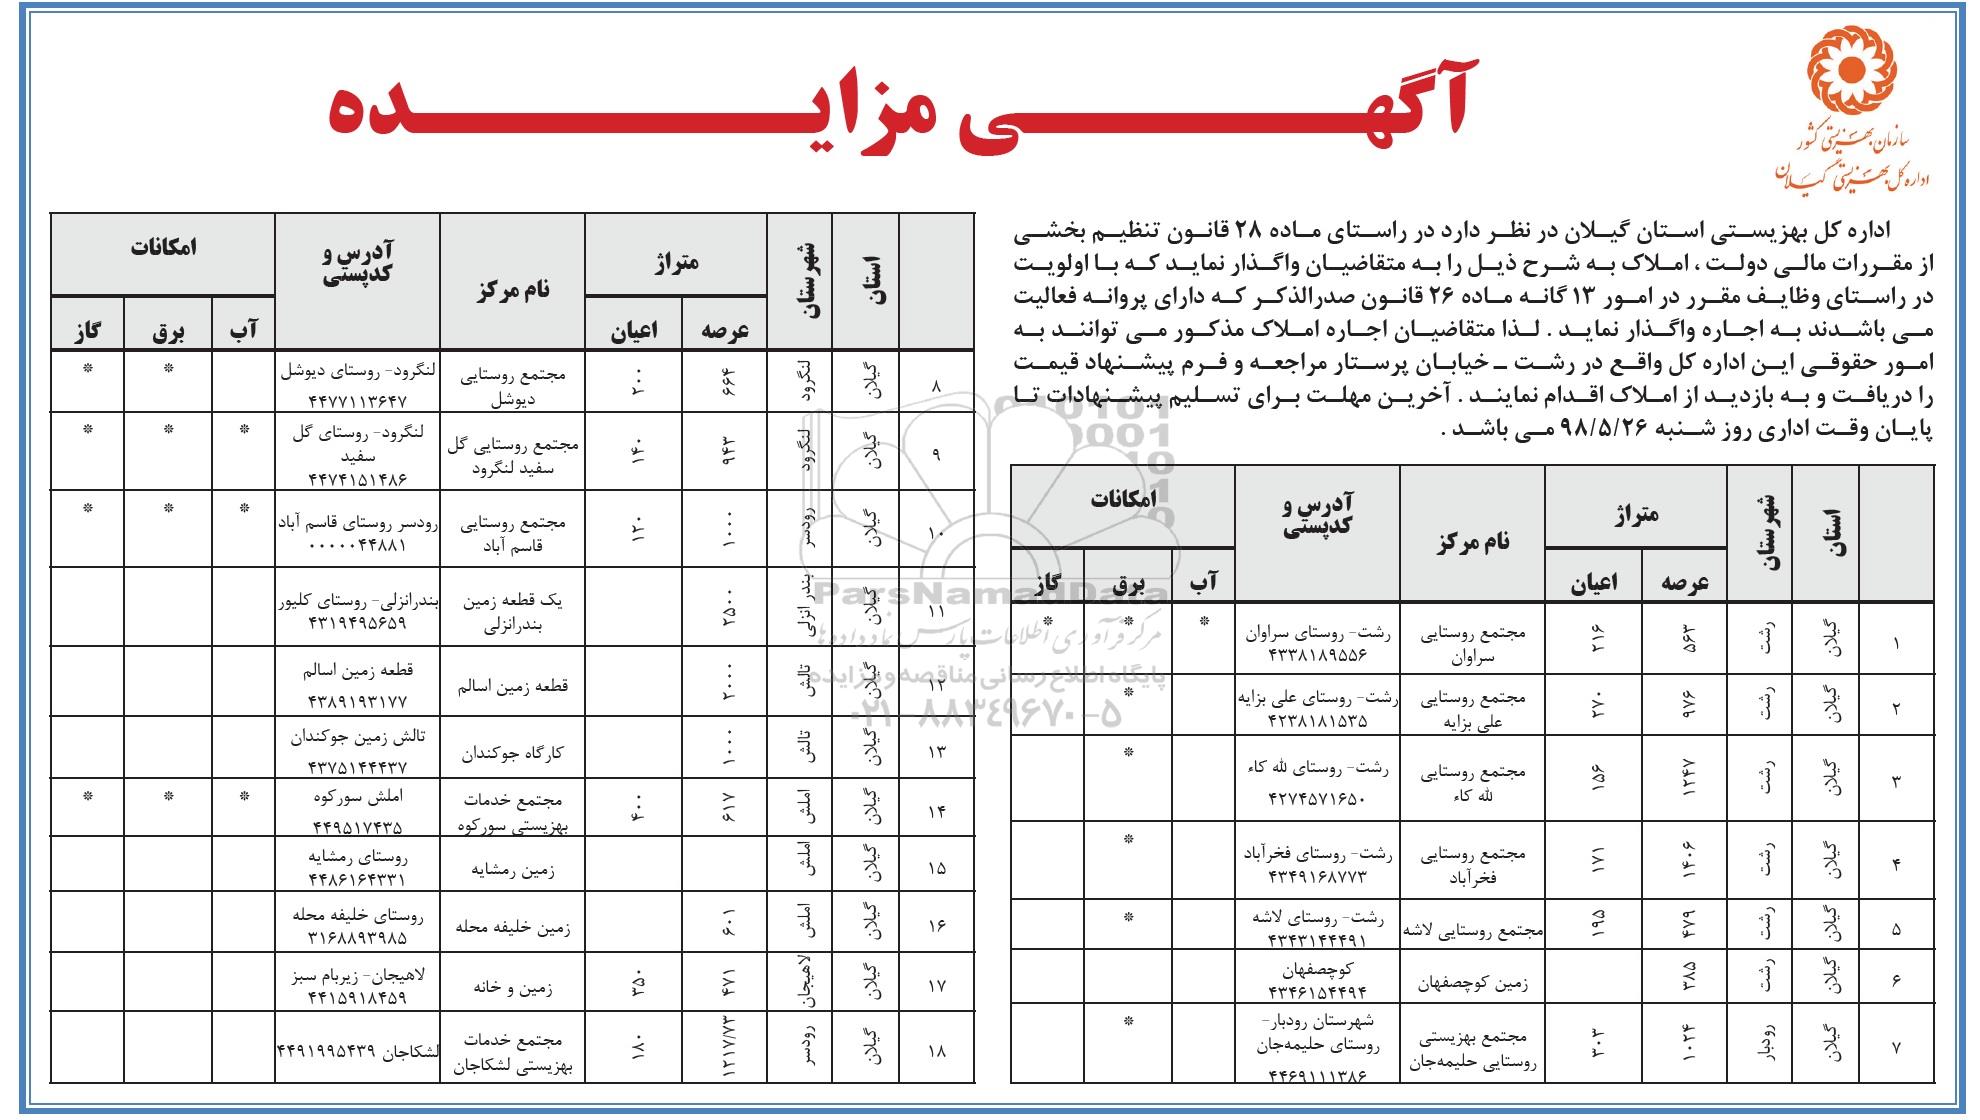 سازمان بهزیستی کشور
اداره کل بهزیستی گیلان
آگهی مزایده
اداره کل بهزیستی استان گیلان در نظر دارد در راستای ماده ۲۸ قانون تنظیم بخشی
از مقررات مالی دولت ، املاک به شرح ذیل را به متقاضیان واگذار نماید که با اولویت
در راستای وظایف مقرر در امور ۱۳ گانه ماده ۲۶ قانون صدرالذکر که دارای پروانه فعالیت
می باشدند به اجاره واگذار نماید . لذا متقاضیان اجاره املاک مذکور می توانند به
امور حقوقی این اداره کل واقع در رشت ـ خیابان پرستار مراجعه و فرم پیشنهاد قیمت
را دریافت و به بازدید از املاک اقدام نمایند . آخرین مهلت برای تسلیم پیشنهادات تا
پایان وقت اداری روز شنبه ۹۸/۵/۲۶ می باشد .
استان شهرستان متراژ نام مرکز آدرس و کدپستی امکانات
عرصه اعیان آب برق گاز
۱ گیلان رشت ۵۶۳ ۲۱۶ مجتمع روستایی سراوان رشت- روستای سراوان ۴۳۳۸۱۸۹۵۵۶ * * *
۲ گیلان رشت ۹۷۶ ۲۷۰ مجتمع روستایی علی بزایه رشت- روستای علی بزایه ۴۲۳۸۱۸۱۵۳۵ *
۳ گیلان رشت ۱۲۴۷ ۱۵۶ مجتمع روستایی لله کاء رشت- روستای لله کاء ۴۲۷۴۵۷۱۶۵۰ *
۴ گیلان رشت ۱۴۰۶ ۱۷۱ مجتمع روستایی فخرآباد رشت- روستای فخرآباد ۴۳۴۹۱۶۸۷۷۳ *
۵ گیلان رشت ۴۷۹ ۱۹۵ مجتمع روستایی لاشه رشت- روستای لاشه ۴۳۴۳۱۴۴۴۹۱ *
۶ گیلان رشت ۳۸۵ زمین کوچصفهان کوچصفهان ۴۳۴۶۱۵۴۴۹۴
۷ گیلان رودبار ۱۰۲۴ ۳۰۳ مجتمع بهزیستی روستایی حلیمه‌جان شهرستان رودبار- روستای حلیمه‌جان ۴۴۶۹۱۱۱۳۸۶ *
استان شهرستان متراژ نام مرکز آدرس و کدپستی امکانات
عرصه اعیان آب برق گاز
۸ گیلان لنگرود ۶۶۴ ۲۰۰ مجتمع روستایی دیوشل لنگرود- روستای دیوشل ۴۴۷۷۱۱۳۶۴۷ * *
۹ گیلان لنگرود ۹۴۳ ۱۴۰ مجتمع روستایی گل سفید لنگرود لنگرود- روستای گل سفید ۴۴۷۴۱۵۱۴۸۶ * * *
۱۰ گیلان رودسر ۱۰۰۰ ۱۲۰ مجتمع روستایی قاسم آباد رودسر روستای قاسم آباد ۰۰۰۰۰۴۴۸۸۱ * * *
۱۱ گیلان بندر انزلی ۲۵۰۰ یک قطعه زمین بندرانزلی بندرانزلی- روستای کلیور ۴۳۱۹۴۹۵۶۵۹
۱۲ گیلان تالش ۲۰۰۰ قطعه زمین اسالم قطعه زمین اسالم ۴۳۸۹۱۹۳۱۷۷
۱۳ گیلان تالش ۱۰۰۰ کارگاه جوکندان تالش زمین جوکندان ۴۳۷۵۱۴۴۴۳۷
۱۴ گیلان املش ۶۱۷ ۴۰۰ مجتمع خدمات بهزیستی سورکوه املش سورکوه ۴۴۹۵۱۷۴۳۵ * * *
۱۵ گیلان املش زمین رمشایه روستای رمشایه ۴۴۸۶۱۶۴۳۳۱
۱۶ گیلان املش ۶۰۱ زمین خلیفه محله روستای خلیفه محله ۳۱۶۸۸۹۳۹۸۵
۱۷ گیلان لاهیجان ۴۷۱ ۳۵۰ زمین و خانه لاهیجان- زیربام سبز ۴۴۱۵۹۱۸۴۵۹
۱۸ گیلان رودسر ۱۲۱۷/۷۳ ۱۸۰ مجتمع خدمات بهزیستی لشکاجان لشکاجان ۴۴۹۱۹۹۵۴۳۹
ParsNamadData
مرکز فرآوری اطلاعات پارس نماد داده ها
پایگاه اطلاع رسانی مناقصه و مزایده
۰۲۱-۸۸۳۴۹۶۷۰-۵